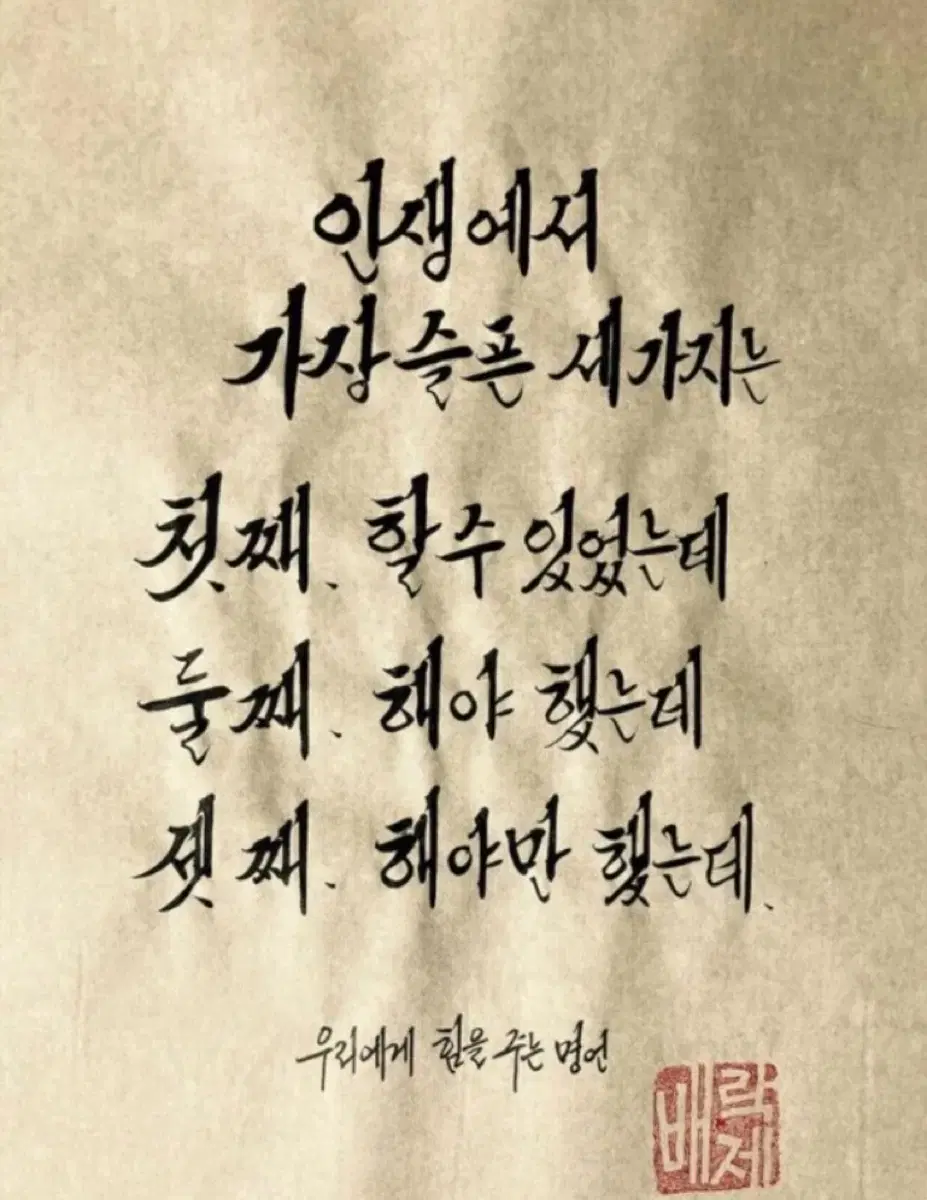 인생에서
가장 슬픈 세가지는
첫째. 할수 있었는데
둘째. 해야 했는데
셋째. 해야만 했는데.
우리에게 힘을 주는 명언
배락제